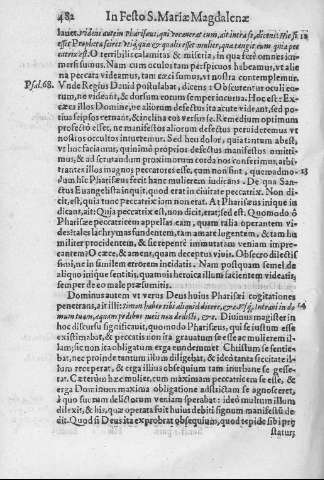 482 In Festo S. Mariæ Magdalenæ
lauet. videns autem Pharisæus, qui vocauerat eum, ait intra se, dicens: Hic si
esset Propheta sciret vtiq; quæ & qualis esset mulier, quæ tangit eum quia pec-
catrix est. O terribilis calamitas & miseria, in qua ferè omnes im-
mersi sumus. Nam cum oculos tam perspicuos habeamus, vt alie
na peccata videamus, tam cæci sumus, vt nostra contemplemur.
Psal. 68. Vnde Regius Dauid postulabat, dicens: Obscurentur oculi eo-
rum, ne videant, & dorsum eorum semper incurua. Hoc est: Ex-
cæca illos Domine, ne aliorum defectus ita acutè videant, sed po-
tius seipsos retineant, & inclina eos versus se. Remedium optimum
profectò esset, ne manifestos aliorum defectus peruideremus vt
nostros occultos intueremur. Sed heu dolor, quia tantum abest,
vt hoc faciamus, quinimò proprios defectus manifestos omitti-
mus, & ad scrutandum proximorum corda nos conferimus, arbi-
trantes illos magnos peccatores esse, cum non sint, quemadmo- 13
dum hic Pharisæus fecit hanc mulierem iudicans. De qua San-
ctus Euangelista inquit, quod erat in ciuitate peccatrix. Non di-
cit, est, quia tunc peccatrix iam non erat. At Pharisæus iniquè in-
dicans, ait: Quia peccatrix est, non dicit, erat; sed est. Quomodo ô
Pharisæe peccatricem appellas eam, quam talia operantem vi-
des: tales lachrymas fundentem, tam amarè lugentem, & tam hu
militer procidentem, & se repentè immutatam veniam impre-
cantem? O cæce, & amens, quàm deceptus viuis. Obsecro dilectis
simi, ne in similem errorem incidatis. Nam postquam semel de
aliquo iniquè sentitis, quamuis heroica illum facientem videatis,
semper de eo malè præsumitis.
Dominus autem vt verus Deus huius Pharisæi cogitationes
penetrans, ait illi:
Diuinus magister in
hoc discursu significauit, quomodo Pharisæus, qui se iustum esse
existimabat, & peccatis non ita grauatum se esse ac mulierem il-
lam, sic non ita obligatum erga eundem esse Christum se sentie-
bat, nec proinde tantum illum diligebat, & ideò tanta siccitate il-
lum receperat, & erga illius obsequium tam inurbanè se gesse-
rat. Cæterum hæc mulier, cum maximam peccatricem se esse, &
erga Dominum maxima obligatione adstrictam se agnosceret,
à quo suorum delictorum veniam sperabat: ideò multum illum
dilexit, & his, quæ operata fuit huius debiti signum manifestū de-
dit. Quod si Deus ita exprobrat obsequium, quod tepidè sibi præ
statur;